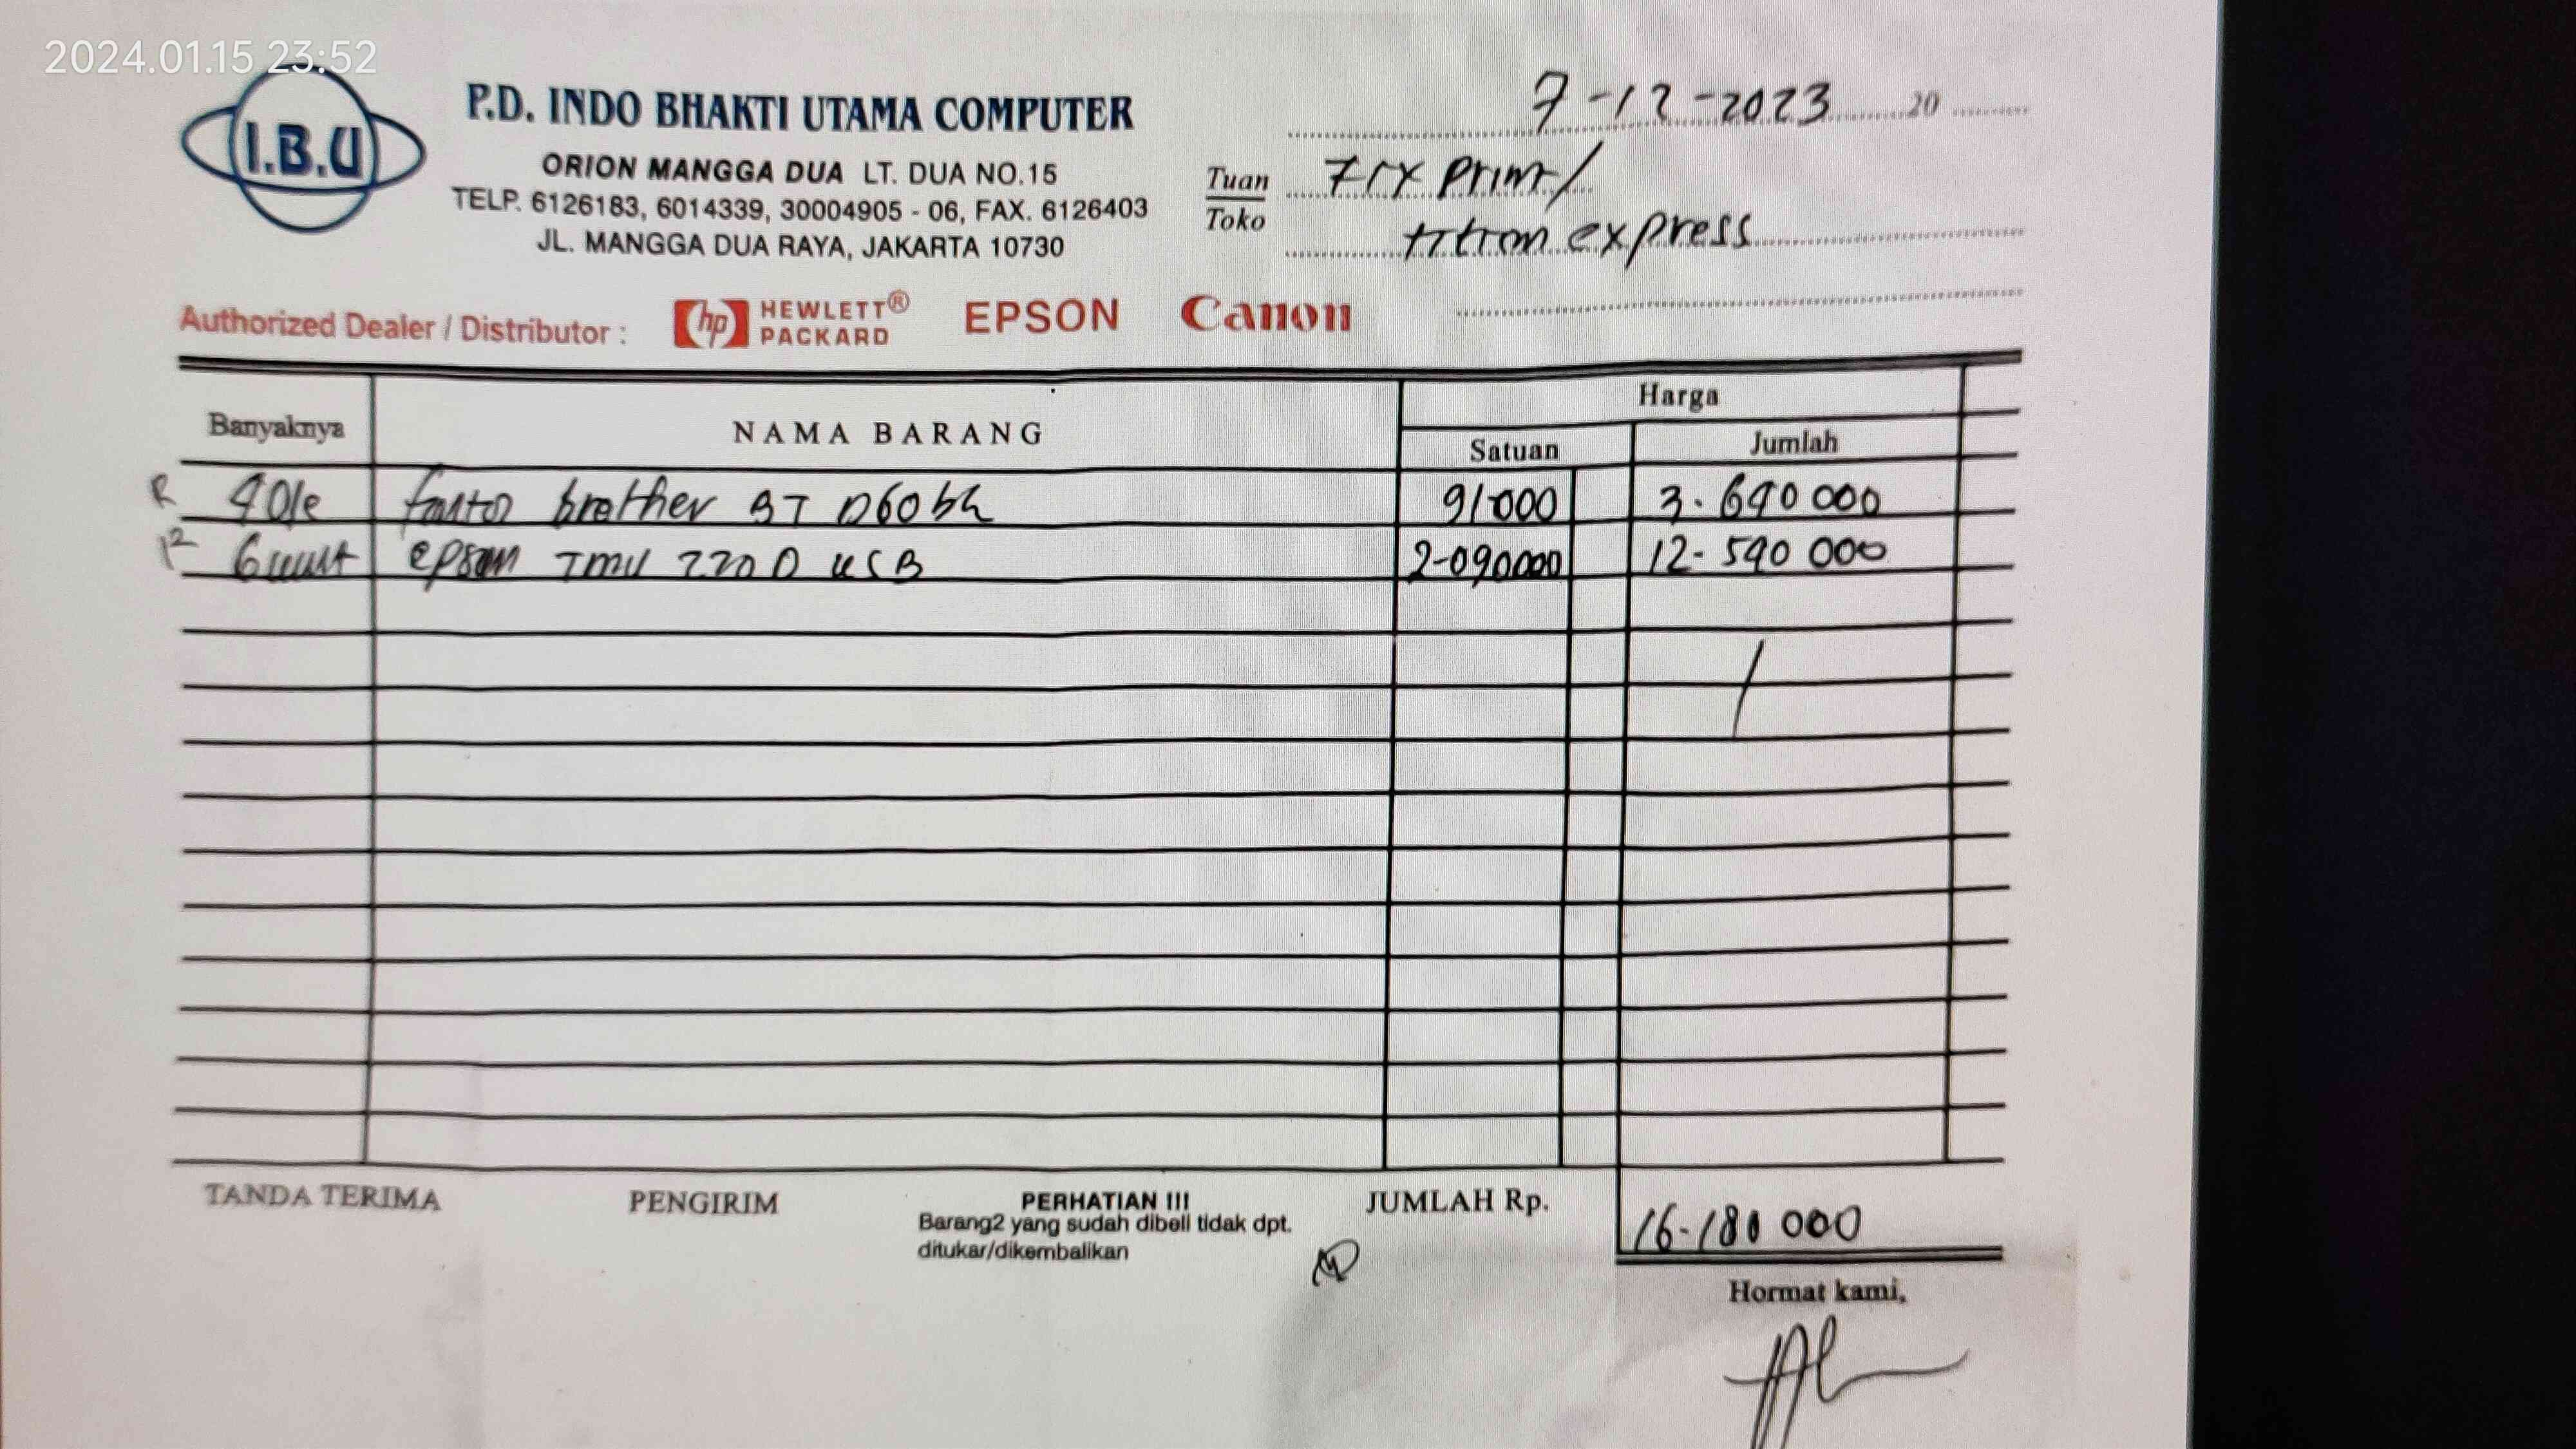 2024.01.15 23:52
I.B.U
P.D. INDO BHAKTI UTAMA COMPUTER
ORION MANGGA DUA LT. DUA NO.15
TELP. 6126183, 6014339, 30004905 - 06, FAX. 6126403
JL. MANGGA DUA RAYA, JAKARTA 10730
7-12-2023 20
Tuan
Toko
print/
express
Authorized Dealer / Distributor : hp HEWLETT® PACKARD EPSON Canon
Banyaknya NAMA BARANG Harga
Satuan Jumlah
brother BT D60bk 000 3.640 000
6 unit epson TMU 220 D USB 2-090000 12-540 000
TANDA TERIMA PENGIRIM PERHATIAN !!! JUMLAH Rp. 16-180 000
Barang2 yang sudah dibeli tidak dpt.
ditukar/dikembalikan
Hormat kami,